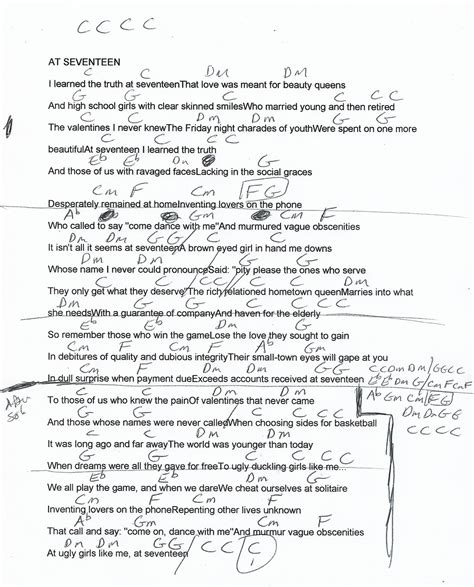 C C C C
AT SEVENTEEN
C C Dm DM
I learned the truth at seventeenThat love was meant for beauty queens
G G C C
And high school girls with clear skinned smilesWho married young and then retired
C C Dm Dm
The valentines I never knewThe Friday night charades of youthWere spent on one more
G G C C
beautifulAt seventeen I learned the truth
Eb Eb Dm G
And those of us with ravaged facesLacking in the social graces
Cm F Cm FG
Desperately remained at homeInventing lovers on the phone
Ab Gm Cm F
Who called to say "come dance with me"And murmured vague obscenities
Dm Dm G G C C
It isn't all it seems at seventeenA brown eyed girl in hand me downs
Dm Dm G G
Whose name I never could pronounceSaid: "pity please the ones who serve
C C C C
They only get what they deserve"The rich relationed hometown queenMarries into what
G G C C
she needsWith a guarantee of companyAnd haven for the elderly
Eb Eb Dm G
So remember those who win the gameLose the love they sought to gain
Cm F Cm F
In debitures of quality and dubious integrityTheir small-town eyes will gape at you
Ab Gm Dm Dm G G
CCDmDM/GGCC
In dull surprise when payment dueExceeds accounts received at seventeen
EbEbDmG/CmFCmF
C C Dm Dm
AbGm Cm FG
To those of us who knew the painOf valentines that never came
DmDmGG
G G C C
CCCC
And those whose names were never calledWhen choosing sides for basketball
C C Dm Dm
It was long ago and far awayThe world was younger than today
G G C C
When dreams were all they gave for freeTo ugly duckling girls like me...
Eb Eb Dm G
We all play the game, and when we dareWe cheat ourselves at solitaire
Cm F Cm F
Inventing lovers on the phoneRepenting other lives unknown
Ab Gm Cm F
That call and say: "come on, dance with me"And murmur vague obscenities
Dm Dm G G C C C
At ugly girls like me, at seventeen